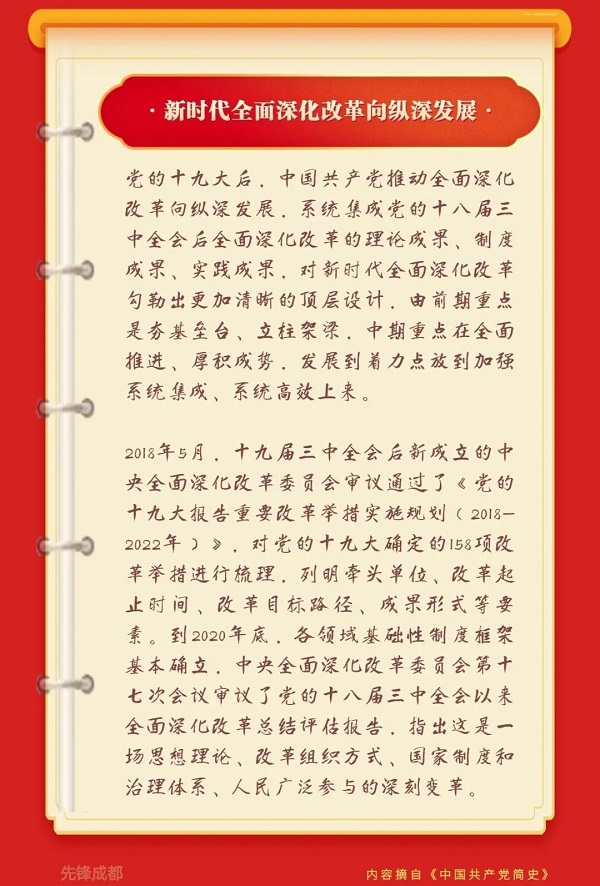 ·新时代全面深化改革向纵深发展·
党的十九大后，中国共产党推动全面深化
改革向纵深发展，系统集成党的十八届三
中全会后全面深化改革的理论成果、制度
成果、实践成果，对新时代全面深化改革
勾勒出更加清晰的顶层设计，由前期重点
是夯基垒台、立柱架梁，中期重点在全面
推进、厚积成势，发展到着力点放到加强
系统集成、系统高效上来。
2018年5月，十九届三中全会后新成立的中
央全面深化改革委员会审议通过了《党的
十九大报告重要改革举措实施规划（2018—
2022年）》，对党的十九大确定的158项改
革举措进行梳理，列明牵头单位、改革起
止时间、改革目标路径、成果形式等要
素。到2020年底，各领域基础性制度框架
基本确立，中央全面深化改革委员会第十
七次会议审议了党的十八届三中全会以来
全面深化改革总结评估报告，指出这是一
场思想理论、改革组织方式、国家制度和
治理体系、人民广泛参与的深刻变革。
先锋成都
内容摘自《中国共产党简史》